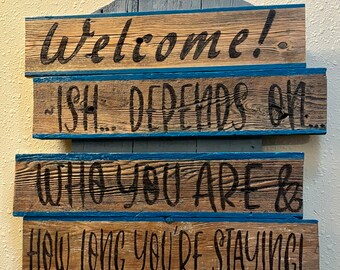 Welcome!
~ISH... DEPENDS ON...
WHO YOU ARE &
HOW LONG YOU'RE STAYING!